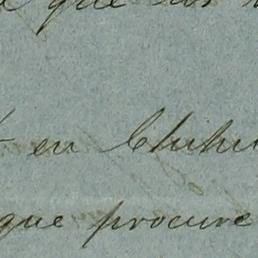 que
en Chihu
que procure